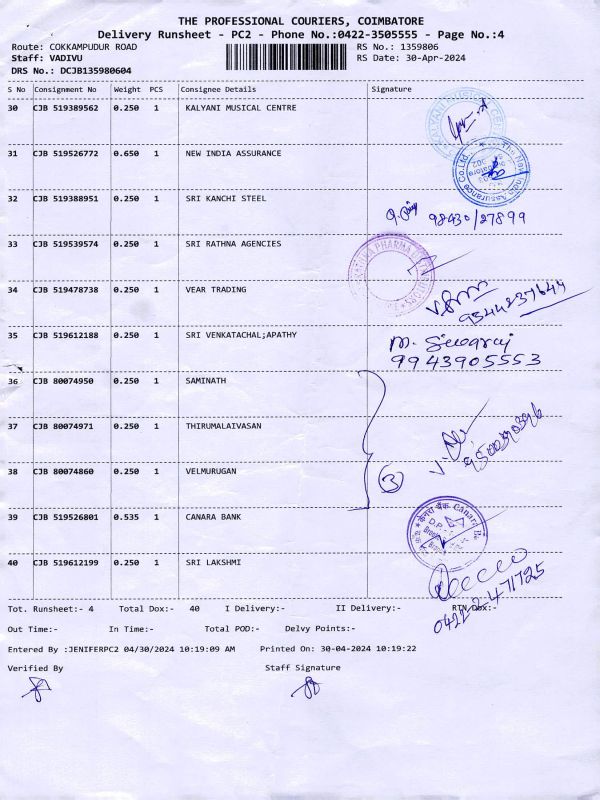 THE PROFESSIONAL COURIERS, COIMBATORE
Delivery Runsheet - PC2 - Phone No.:0422-3505555 - Page No.:4
Route: COKKAMPUDUR ROAD RS No.: 1359806
Staff: VADIVU RS Date: 30-Apr-2024
DRS No.: DCJB135980604
S No Consignment No Weight PCS Consignee Details Signature
30 CJB 519389562 0.250 1 KALYANI MUSICAL CENTRE
31 CJB 519526772 0.650 1 NEW INDIA ASSURANCE
32 CJB 519388951 0.250 1 SRI KANCHI STEEL 98430/27899
33 CJB 519539574 0.250 1 SRI RATHNA AGENCIES
34 CJB 519478738 0.250 1 VEAR TRADING 9344237644
35 CJB 519612188 0.250 1 SRI VENKATACHAL;APATHY M. Sivaraj
9943905553
36 CJB 80074950 0.250 1 SAMINATH
37 CJB 80074971 0.250 1 THIRUMALAIVASAN
38 CJB 80074860 0.250 1 VELMURUGAN 3
39 CJB 519526801 0.535 1 CANARA BANK
40 CJB 519612199 0.250 1 SRI LAKSHMI
Tot. Runsheet:- 4 Total Dox:- 40 I Delivery:- II Delivery:- RTN Dox:-
Out Time:- In Time:- Total POD:- Delvy Points:-
Entered By :JENIFERPC2 04/30/2024 10:19:09 AM Printed On: 30-04-2024 10:19:22
Verified By Staff Signature